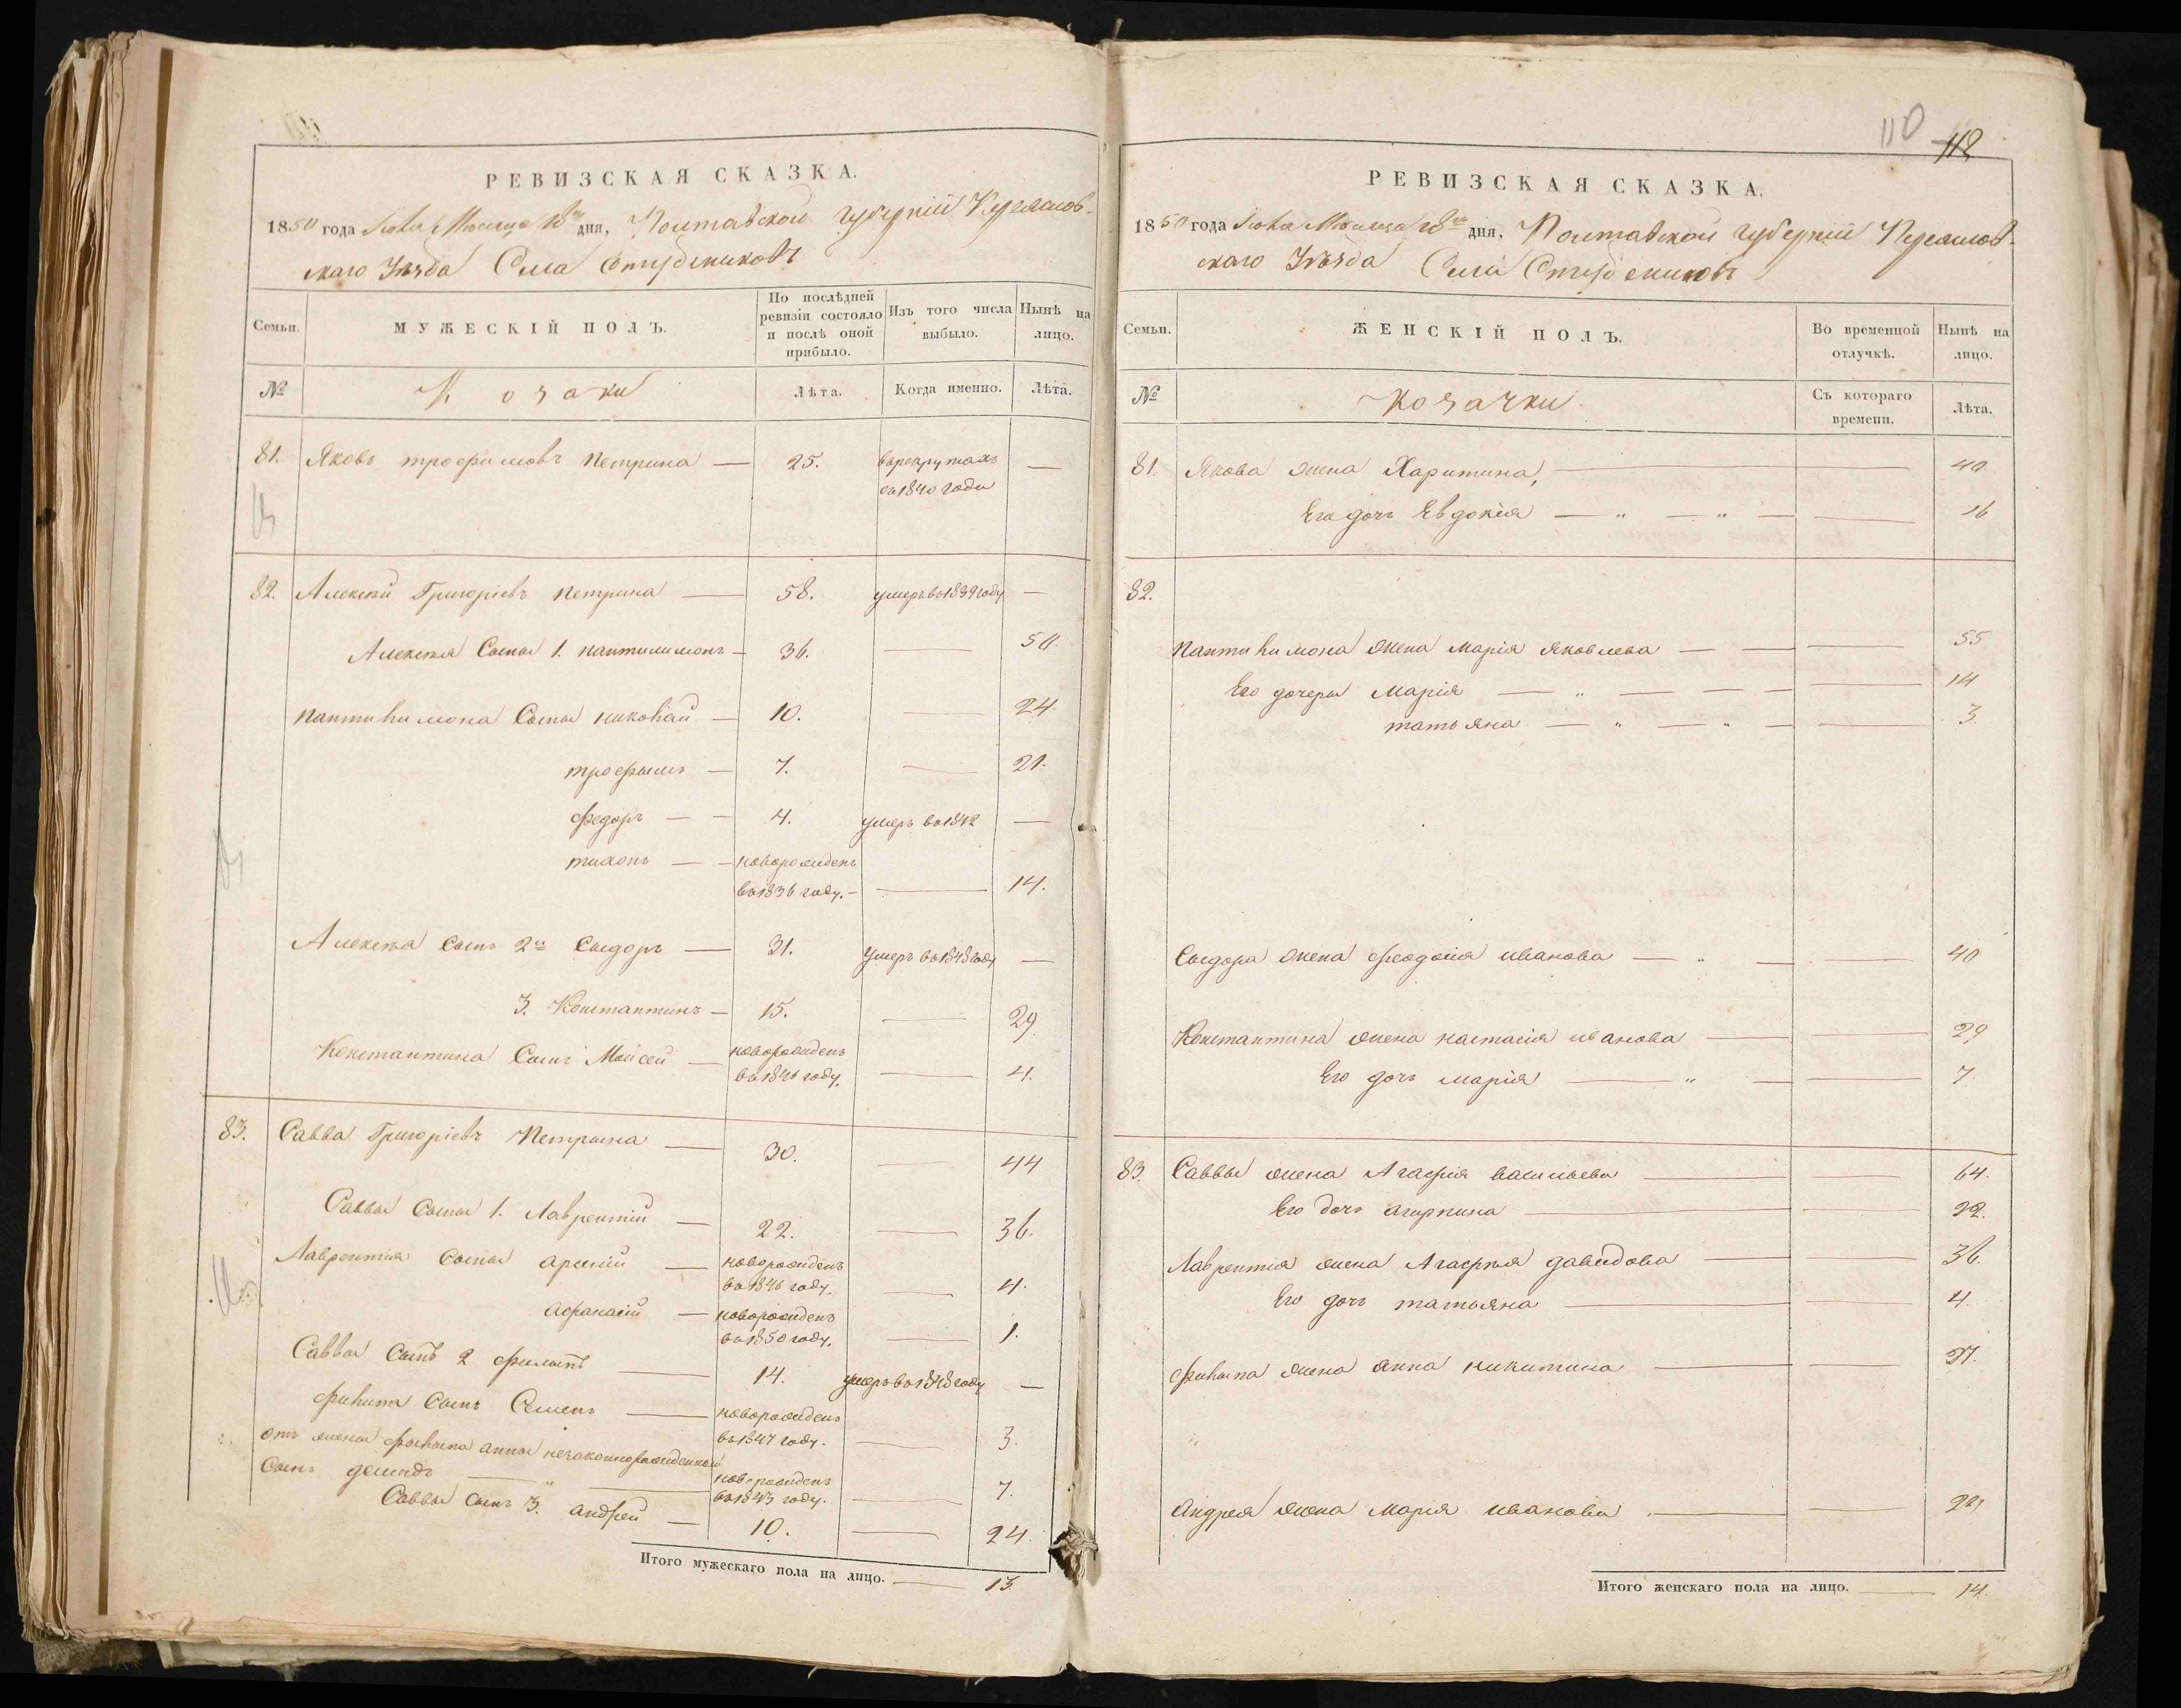 РЕВИЗСКАЯ СКАЗКА.
1850 года Іюня Мѣсяца 18го дня, Полтавской губерніи Переяслов-
скаго Уѣзда Села Студениковъ
Семьи.
МУЖЕСКІЙ ПОЛЪ.
По послѣдней ревизіи состояло и послѣ оной прибыло.
Изъ того числа выбыло.
Нынѣ на лицо.
№
Козаки
Лѣта.
Когда именно.
Лѣта.
81. Яковъ трофимовъ петрина — 25. въ рекрутахъ —
съ 1840 года
82. Алексѣй Григоріевъ петрина — 58. умеръ въ 1839 году —
Алексѣя Сыны 1. пантилимонъ — 36. — 50.
пантилимона Сыны николай — 10. — 24.
трофимъ — 7. — 21.
федоръ — — 4. умеръ въ 1842 —
тихонъ — — новорожденъ
въ 1836 году. — — 14.
Алексѣя Сынъ 2й Сыдоръ — 31. умеръ въ 1848 году —
3. Константинъ — 15. — 29.
Константина Сынъ Моисей — новорожденъ
въ 1846 году. — 4.
83. Савва Григоріевъ Петрина — 30. — 44
Саввы Сыны 1. Лаврентій — 22. — 36.
Лаврентія Сыны арсеній — новорожденъ
въ 1846 году. — 4.
афанасій — новорожденъ
въ 1850 году. — 1.
Саввы Сынъ 2 филипъ — 14. умеръ въ 1848 году —
филипа Сынъ Семенъ — новорожденъ
въ 1847 году. — 3.
отъ жены филипа анны незаконнорожденный
Сынъ демидъ — " — новорожденъ
въ 1843 году. — 7.
Саввы сынъ 3. андрей — 10. — 24.
Итого мужескаго пола на лицо. — 13
110 118
РЕВИЗСКАЯ СКАЗКА.
1850 года Іюня Мѣсяца 18го дня, Полтавской губерніи Переяслов-
скаго Уѣзда Села Студениковъ
Семьи.
ЖЕНСКІЙ ПОЛЪ.
Во временной отлучкѣ.
Нынѣ на лицо.
№
Козачки.
Съ котораго времени.
Лѣта.
81. Якова жена Харитина, — — 40.
Его дочь Евдокія — " — " — — 16
82.
пантилимона жена Марія Яковлева — — — 55
Его дочери Марія — " — — — — 14
татьяна — " — " — — 3.
Сыдора жена феодосія иванова — " — — 40
Константина жена настасія иванова — — 29
Его дочь марія — " — — 7.
83. Саввы жена Агафія васильева — — 64.
Его дочь агрипина — — 22.
Лаврентія жена Агафья давидова — — 36.
Его дочь татьяна — — 4.
филипа жена анна никитина — — 37.
Андрея жена Марія иванова — —
Итого женскаго пола на лицо. — 14.